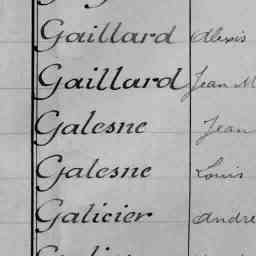 Gaillard Alexis
Gaillard Jean M
Galesne Jean
Galesne Louis
Galicier André